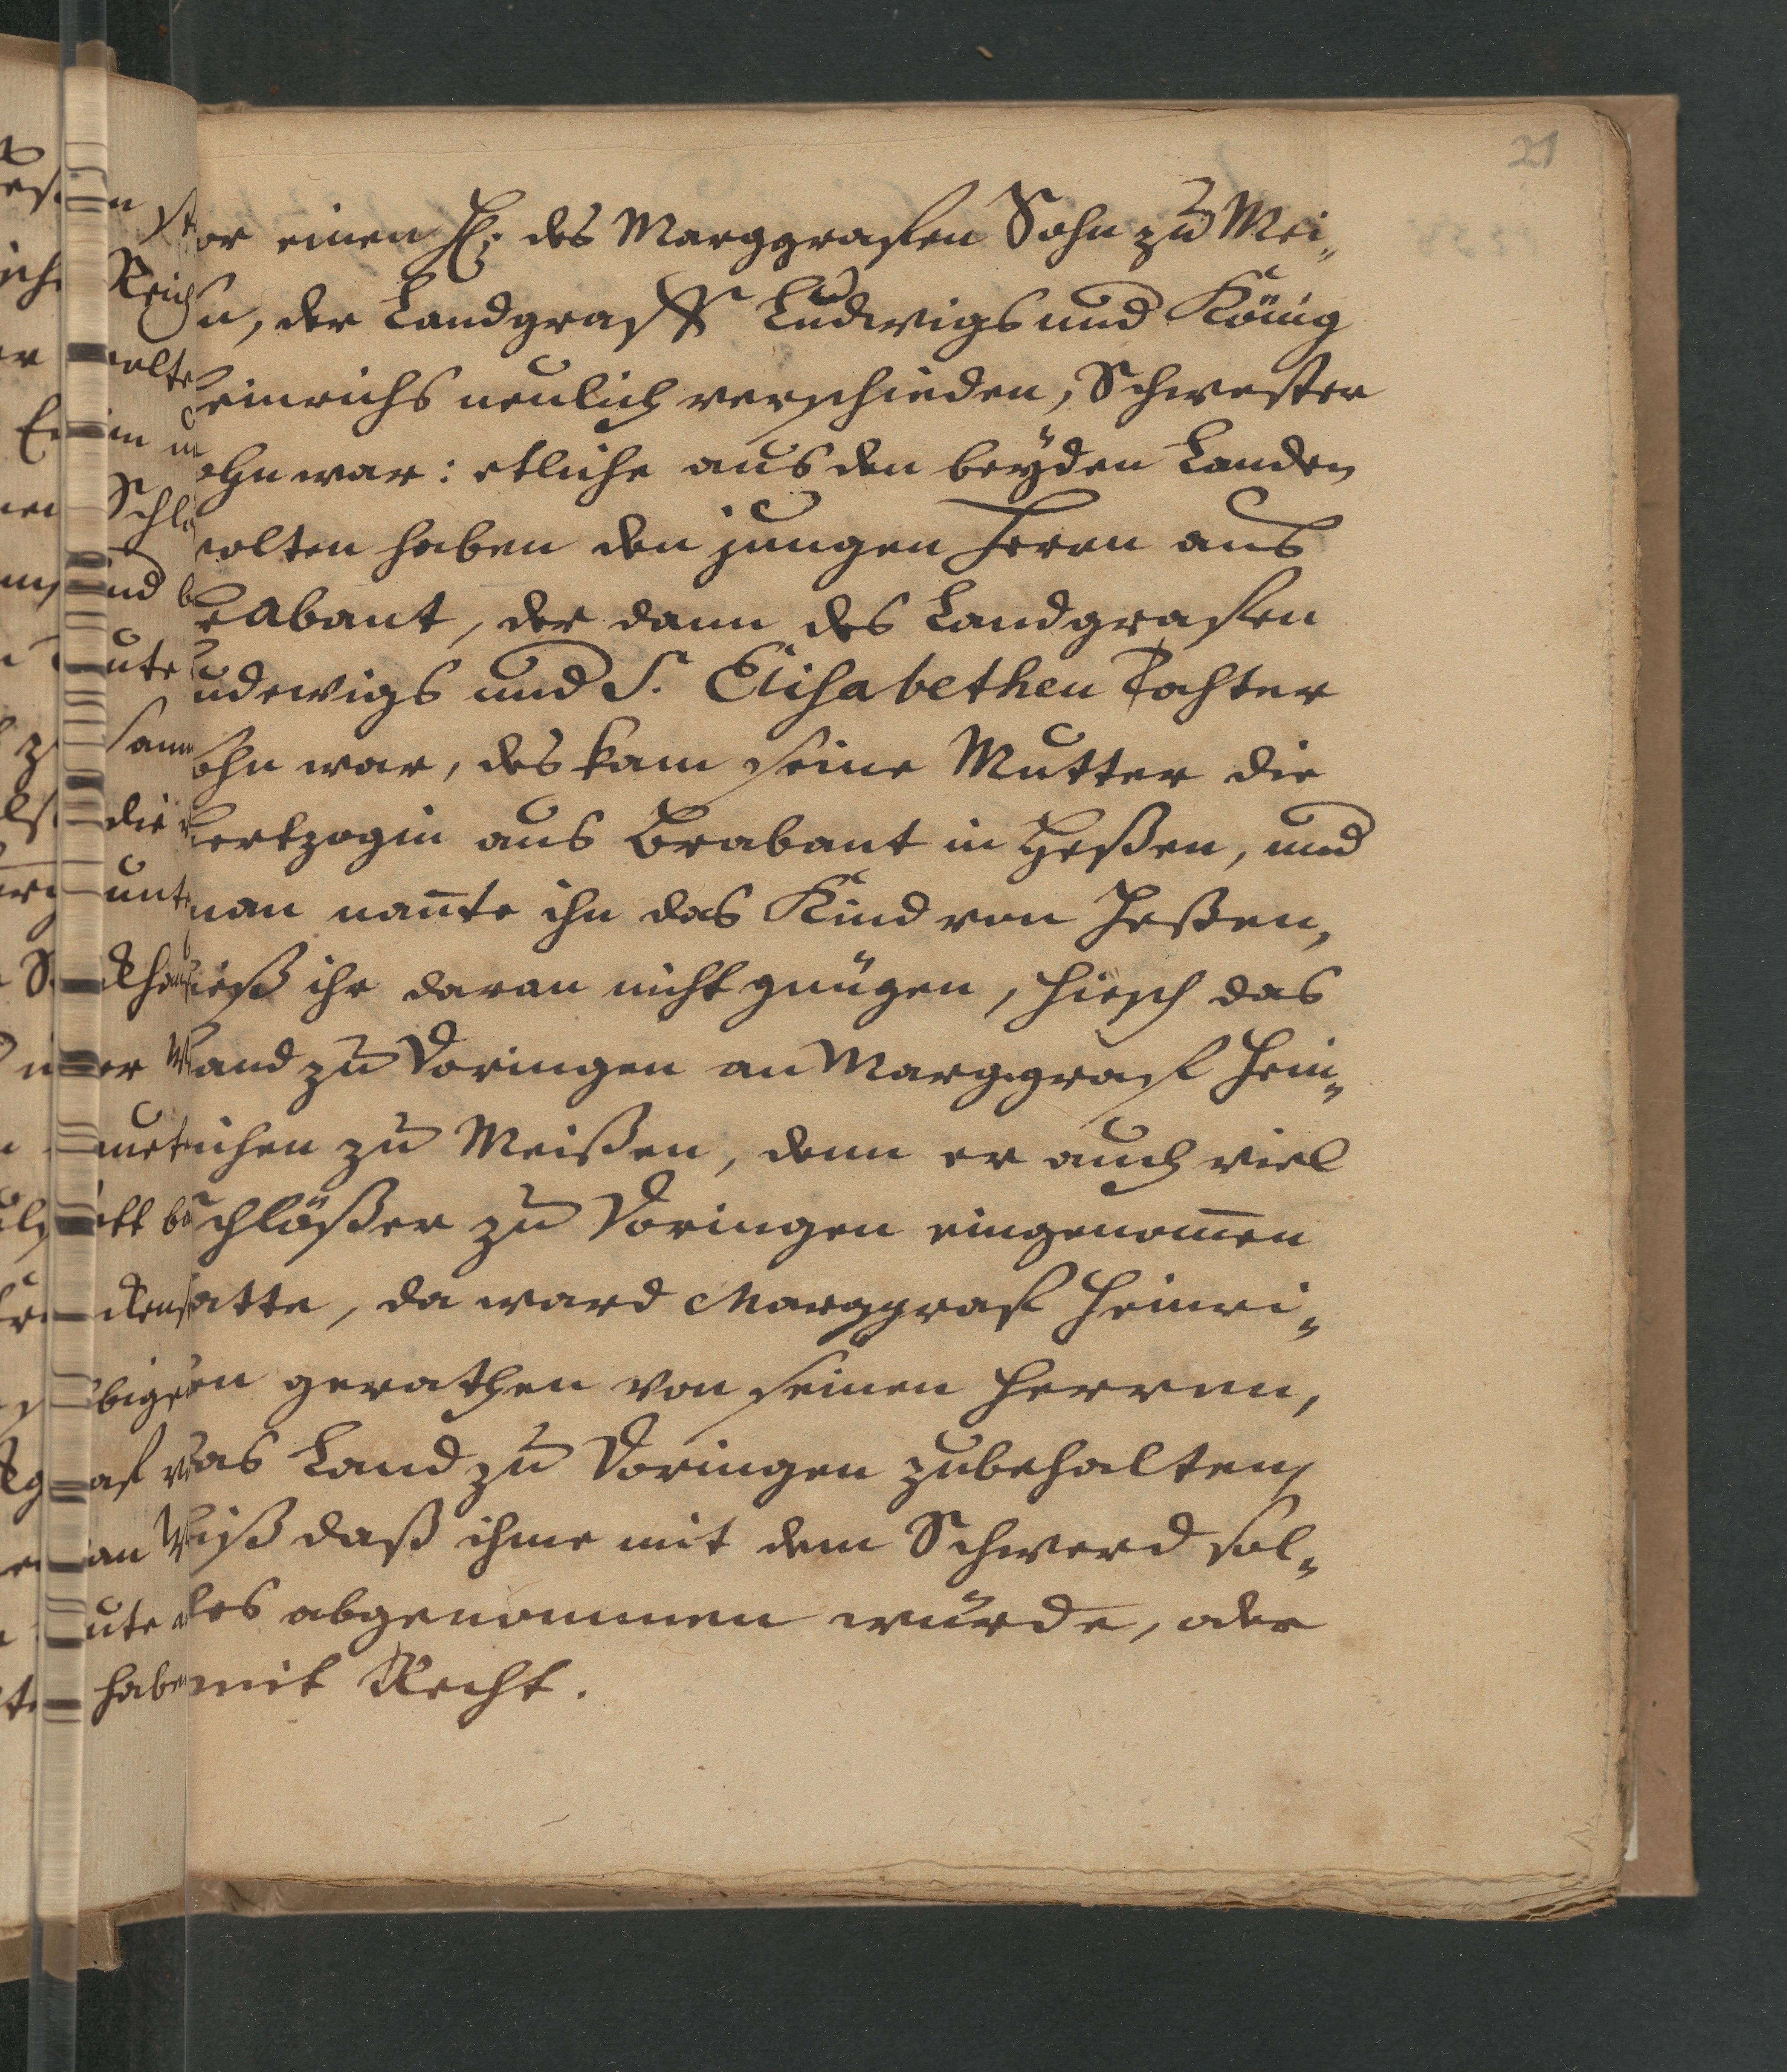 21
or einen H: des Marggrafen Sohn zu Mei„
n, der Landgraff Ludwigs und König
einrichs neulich verschieden, Schwester
ohn war: etliche aus den beyden Landen
olten haben den jungen Herrn aus
rabant, der dann des Landgrafen
udewigs und S. Elisabethen Tochter
ohn war, des kam seine Mutter die
ertzogin aus Brabant in Heßen, und
man nañte ihn das Kind von Heßen,
ieß ihr daran nicht gnügen, hiesch das
and zu Doringen an Marggraf Hein„
richen zu Meißen, denn er auch viel
chlößer zu Doringen eingenom̄en
atte, da ward Marggraf Heinri„
en gerathen von seinen Herren,
as Land zu Doringen zubehalten,
iß daß ihme mit dem Schwerd sol„
ches abgenommen würde, oder
mit Recht.